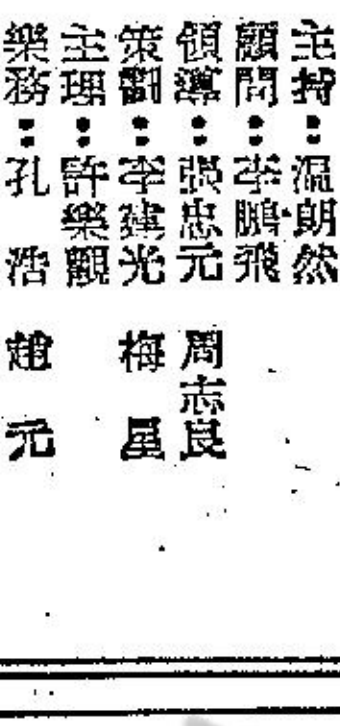 主持：溫朗然
顧問：李鵬飛
領導：張忠元 周志良
策劃：李建光 梅星
主理：許樂觀
樂務：孔浩 趙元